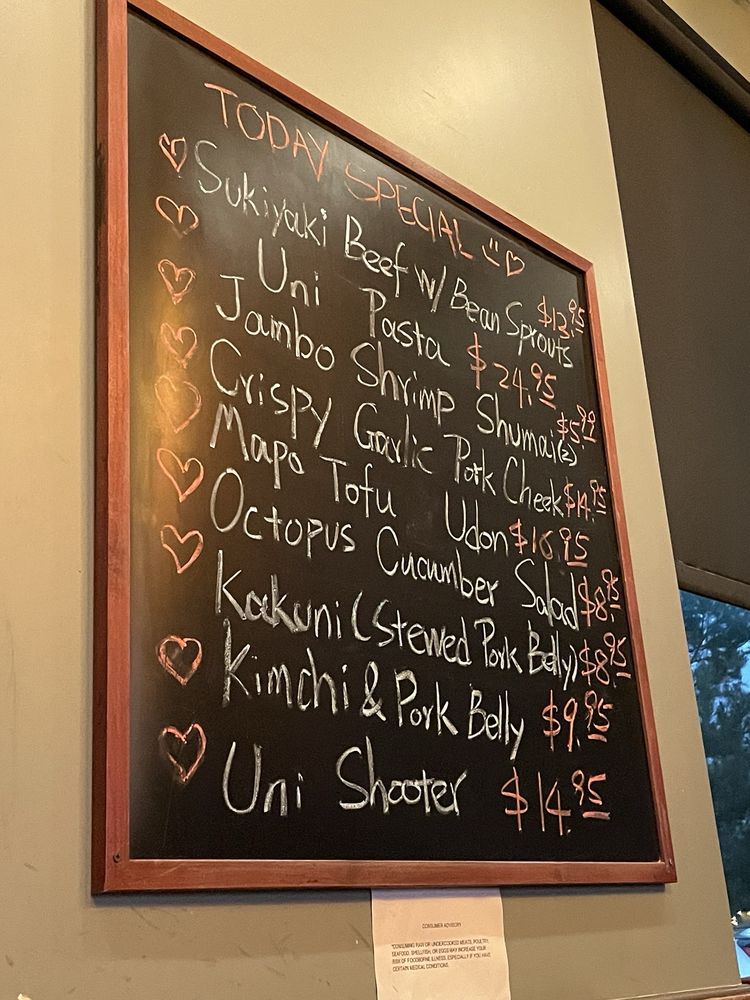 TODAY SPECIAL
Sukiyaki Beef w/ Bean Sprouts $13.95
Uni Pasta $24.95
Jambo Shrimp Shumai(2) $5.99
Crispy Garlic Pork Cheek $14.95
Mapo Tofu Udon $16.95
Octopus Cucumber Salad $8.95
Kakuni (Stewed Pork Belly) $8.95
Kimchi & Pork Belly $9.95
Uni Shooter $14.95
CONSUMER ADVISORY
*CONSUMING RAW OR UNDERCOOKED MEATS, POULTRY,
SEAFOOD, SHELLFISH, OR EGGS MAY INCREASE YOUR
RISK OF FOODBORNE ILLNESS, ESPECIALLY IF YOU HAVE
CERTAIN MEDICAL CONDITIONS.